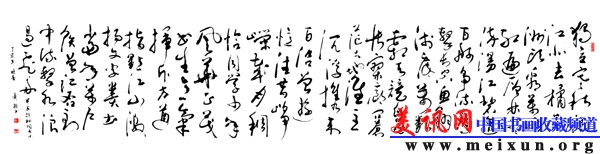 独立寒秋湘
江北去橘子
洲头看万山
红遍层林尽
染漫江碧透
百舸争流鹰
击长空鱼翔
浅底万类
霜天竞自由
怅寥廓问苍
茫大地谁主
沉浮携来
百侣曾游
忆往昔峥
嵘岁月稠
恰同学少年
风华正茂
书生意气
挥斥方遒
指点江山激
扬文字粪土
当年万户
侯曾记否到
中流击水浪
遏飞舟
美讯网 中国书画收藏频道
www.meixun.org